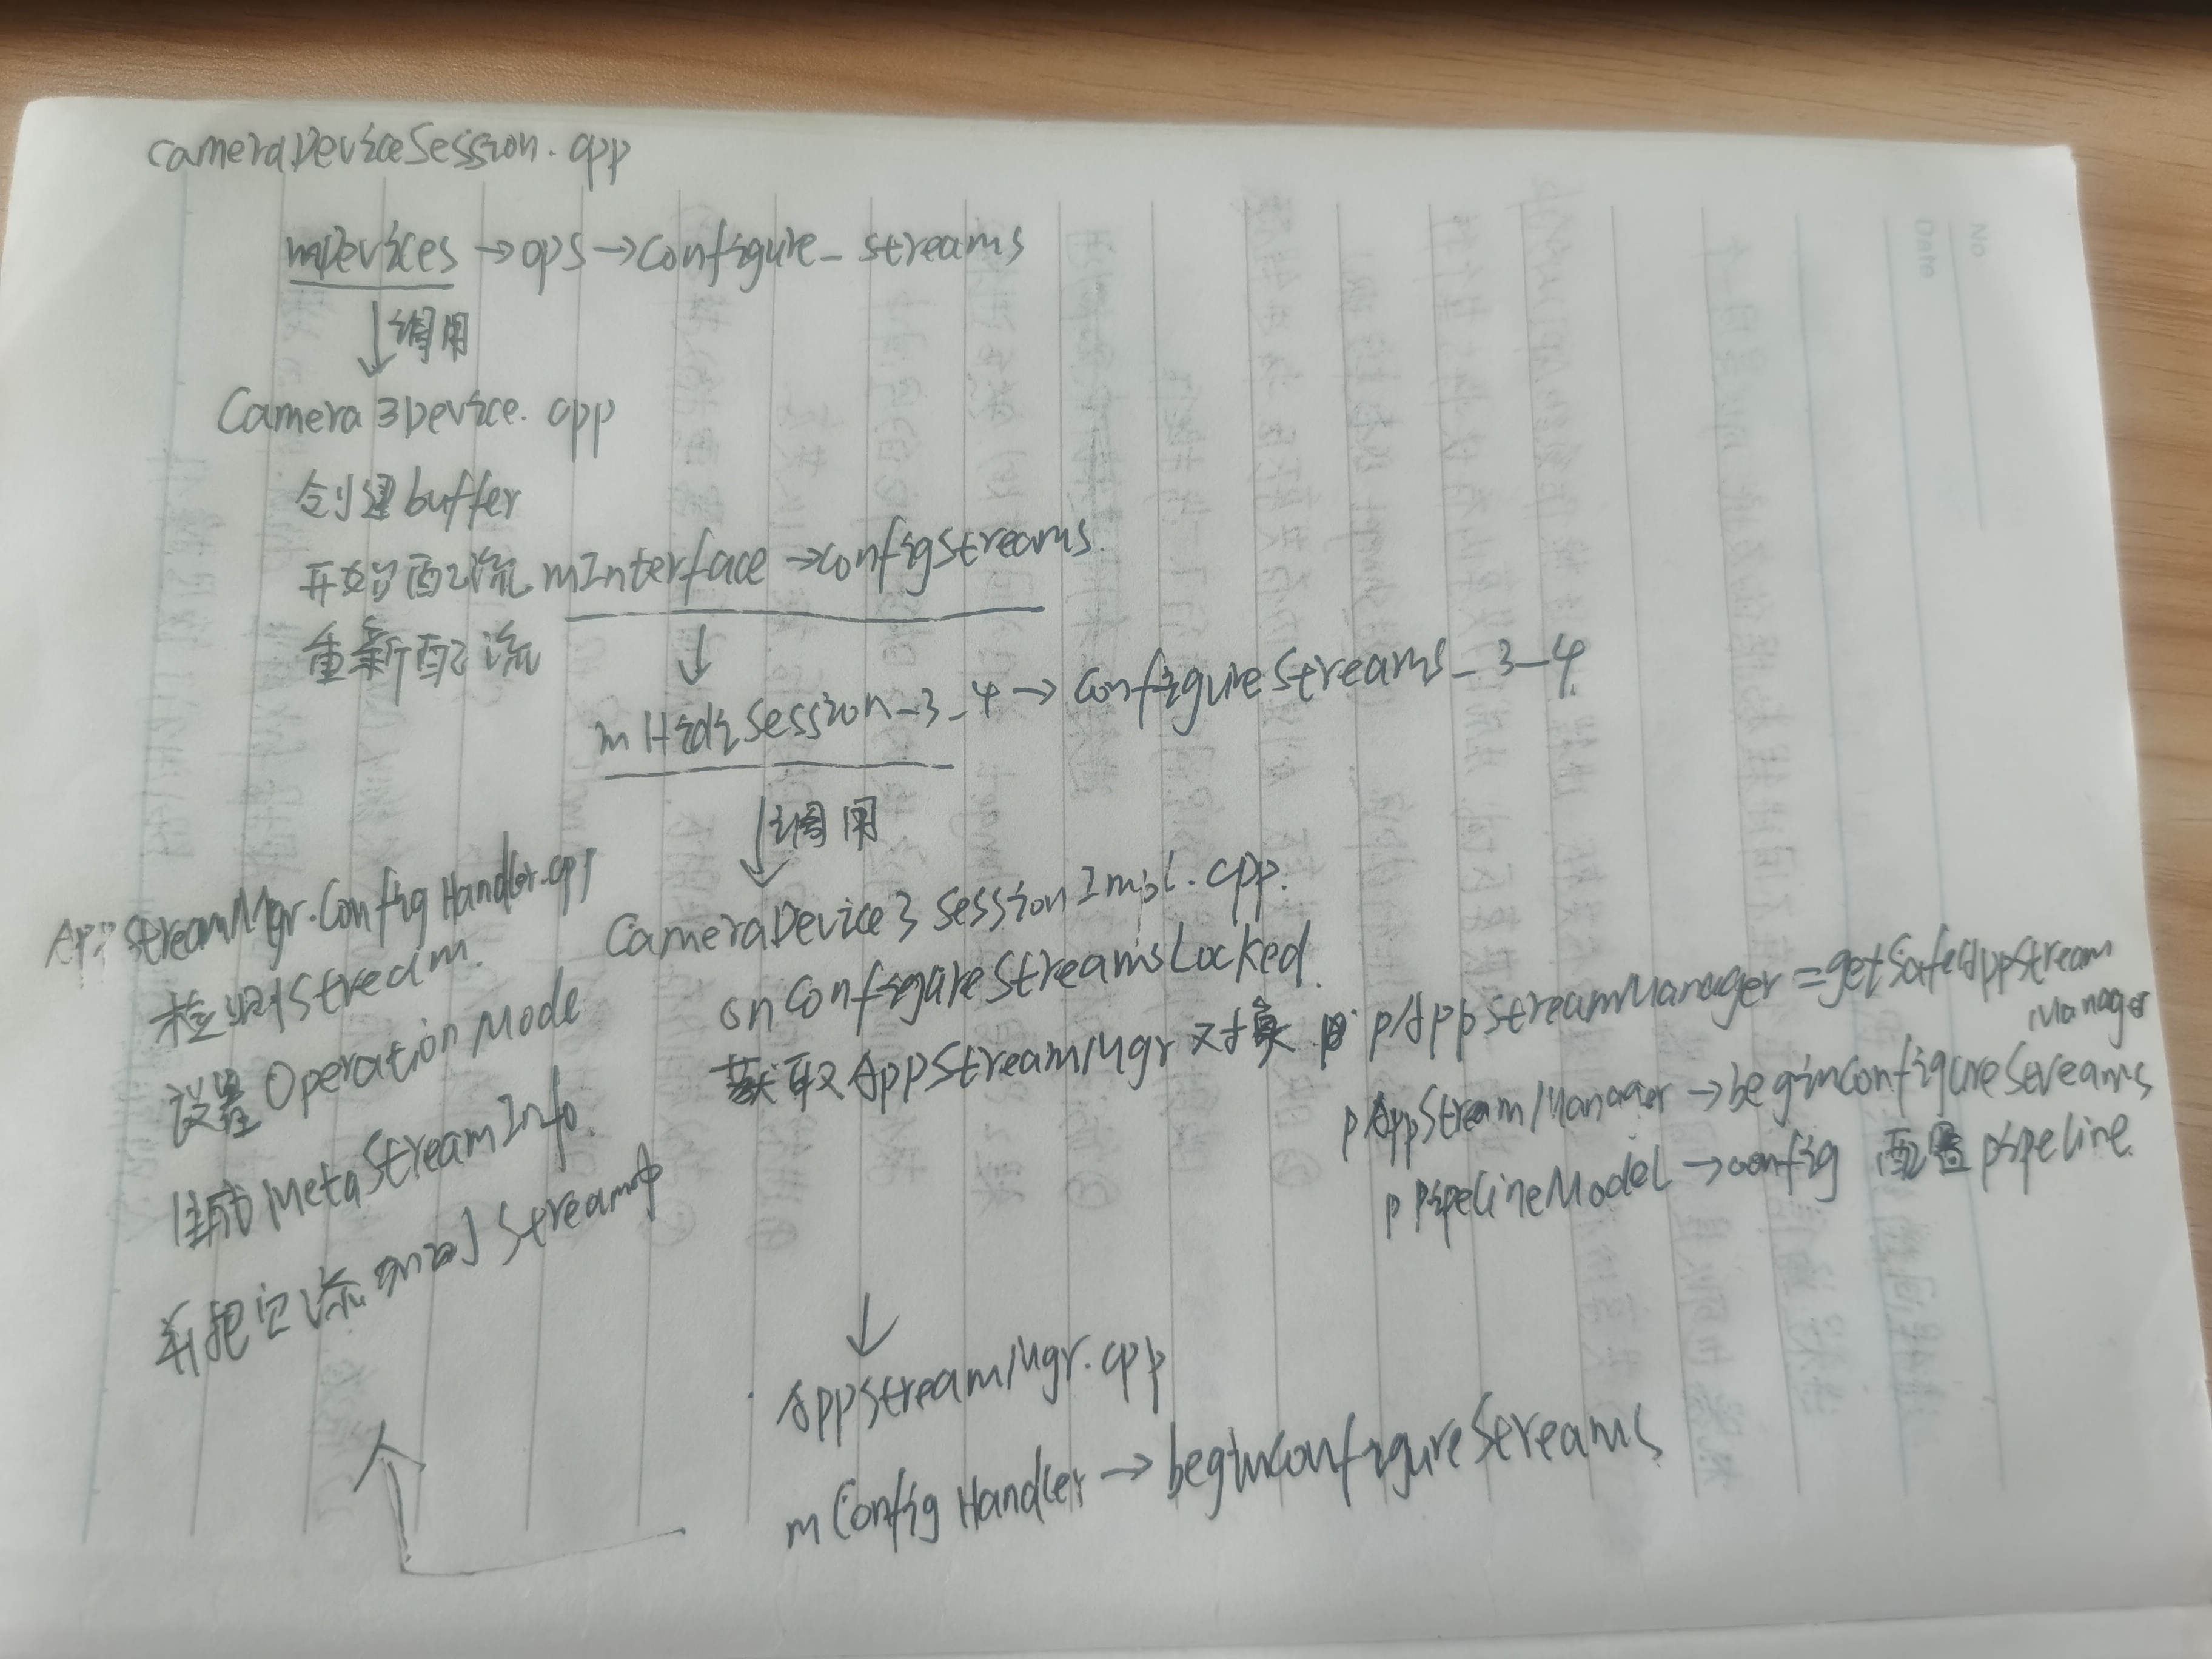 cameraDeviceSession.cpp
mDevices → ops → configure_streams
↓调用
Camera3Device.cpp
创建buffer
开始配流 mInterface → configStreams.
重新配流
↓
mHidlSession_3_4 → configureStreams_3_4
↓调用
CameraDevice3SessionImpl.cpp.
onConfigureStreamsLocked
获取AppStreamMgr对象 pAppStreamManager = getSafeAppStream
Manager
pAppStreamManager → beginConfigureStreams
pPipelineModel → config 配置pipeline
↓
AppStreamMgr.cpp
mConfigHandler → beginConfigureStreams
AppStreamMgr.ConfigHandler.cpp
检测Stream.
设置Operation Mode
生成MetaStreamInfo.
并把它添加到Stream中
No
Date